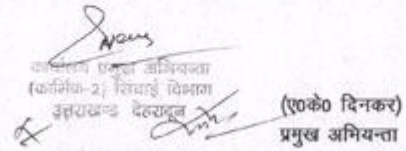 कार्यालय प्रमुख अभियन्ता
(कार्मिक-2) सिंचाई विभाग
उत्तराखण्ड देहरादून
(ए०के० दिनकर)
प्रमुख अभियन्ता